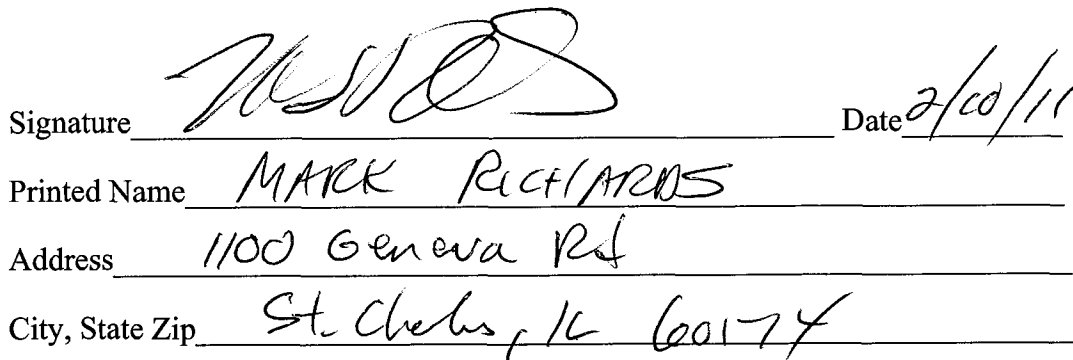 Signature Date 2/10/11
Printed Name MARK RICHARDS
Address 1100 Geneva Rd
City, State Zip St. Charles, IL 60174